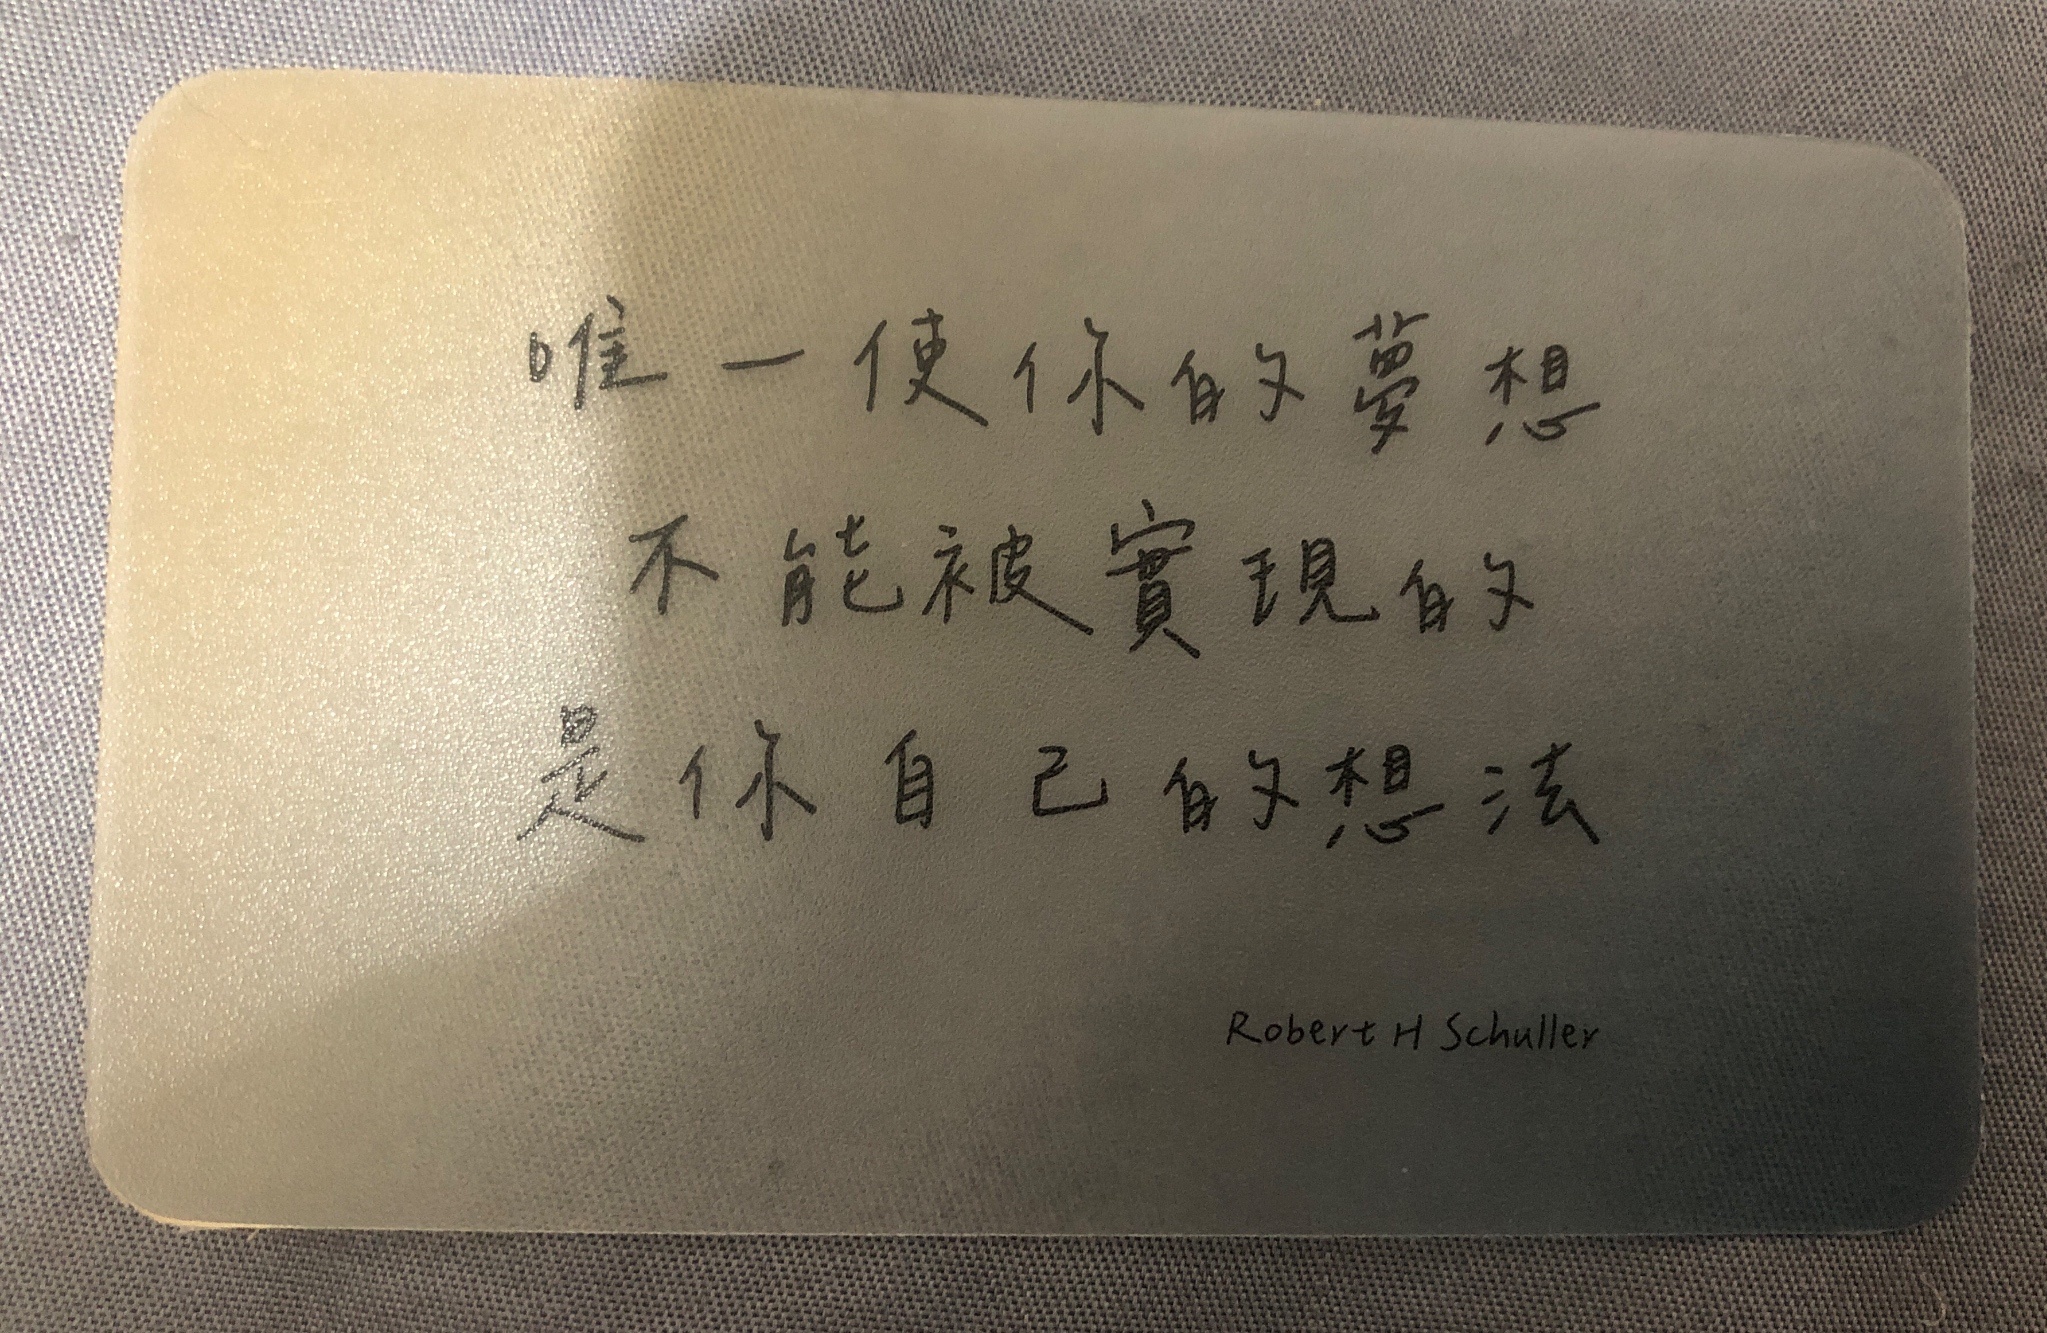 唯一使你的夢想
不能被實現的
是你自己的想法
Robert H Schuller